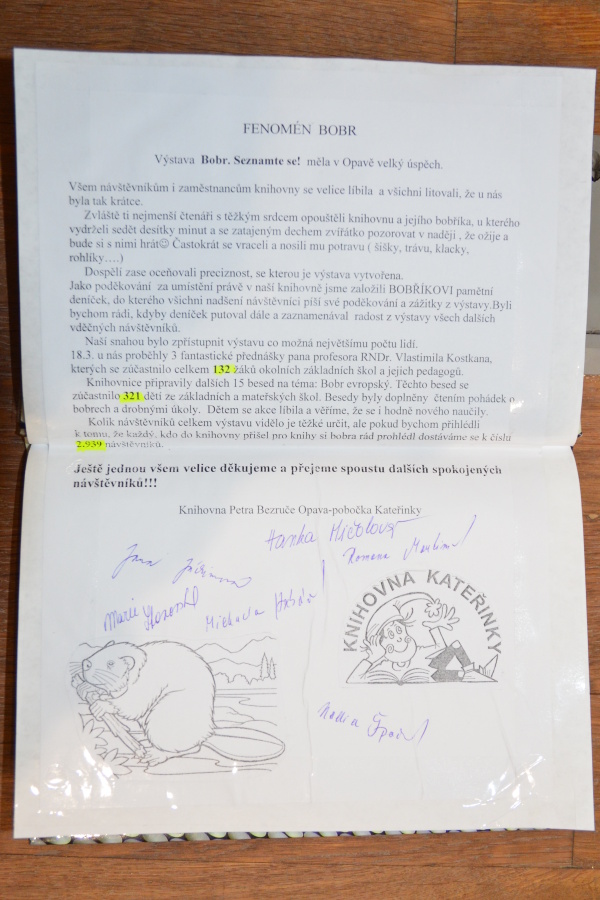 FENOMÉN BOBR
Výstava Bobr. Seznamte se! měla v Opavě velký úspěch.
Všem návštěvníkům i zaměstnancům knihovny se velice líbila a všichni litovali, že u nás
byla tak krátce.
Zvláště ti nejmenší čtenáři s těžkým srdcem opouštěli knihovnu a jejího bobříka, u kterého
vydrželi sedět desítky minut a se zatajeným dechem zvířátko pozorovat v naději , že ožije a
bude si s nimi hrát☺ Častokrát se vraceli a nosili mu potravu ( šišky, trávu, klacky,
rohlíky….)
Dospělí zase oceňovali preciznost, se kterou je výstava vytvořena.
Jako poděkování za umístění právě v naší knihovně jsme založili BOBŘÍKOVI pamětní
deníček, do kterého všichni nadšení návštěvníci píší své poděkování a zážitky z výstavy.Byli
bychom rádi, kdyby deníček putoval dále a zaznamenával radost z výstavy všech dalších
vděčných návštěvníků.
Naší snahou bylo zpřístupnit výstavu co možná největšímu počtu lidí.
18.3. u nás proběhly 3 fantastické přednášky pana profesora RNDr. Vlastimila Kostkana,
kterých se zúčastnilo celkem 132 žáků okolních základních škol a jejich pedagogů.
Knihovnice připravily dalších 15 besed na téma: Bobr evropský. Těchto besed se
zúčastnilo 321 dětí ze základních a mateřských škol. Besedy byly doplněny čtením pohádek o
bobrech a drobnými úkoly. Dětem se akce líbila a věříme, že se i hodně nového naučily.
Kolik návštěvníků celkem výstavu vidělo je těžké určit, ale pokud bychom přihlédli
k tomu, že každý, kdo do knihovny přišel pro knihy si bobra rád prohlédl dostáváme se k číslu
2.939 návštěvníků.
Ještě jednou všem velice děkujeme a přejeme spoustu dalších spokojených
návštěvníků!!!
Knihovna Petra Bezruče Opava-pobočka Kateřinky
Hanka
Romana
Jana
Marie
Michaela
KNIHOVNA KATEŘINKY